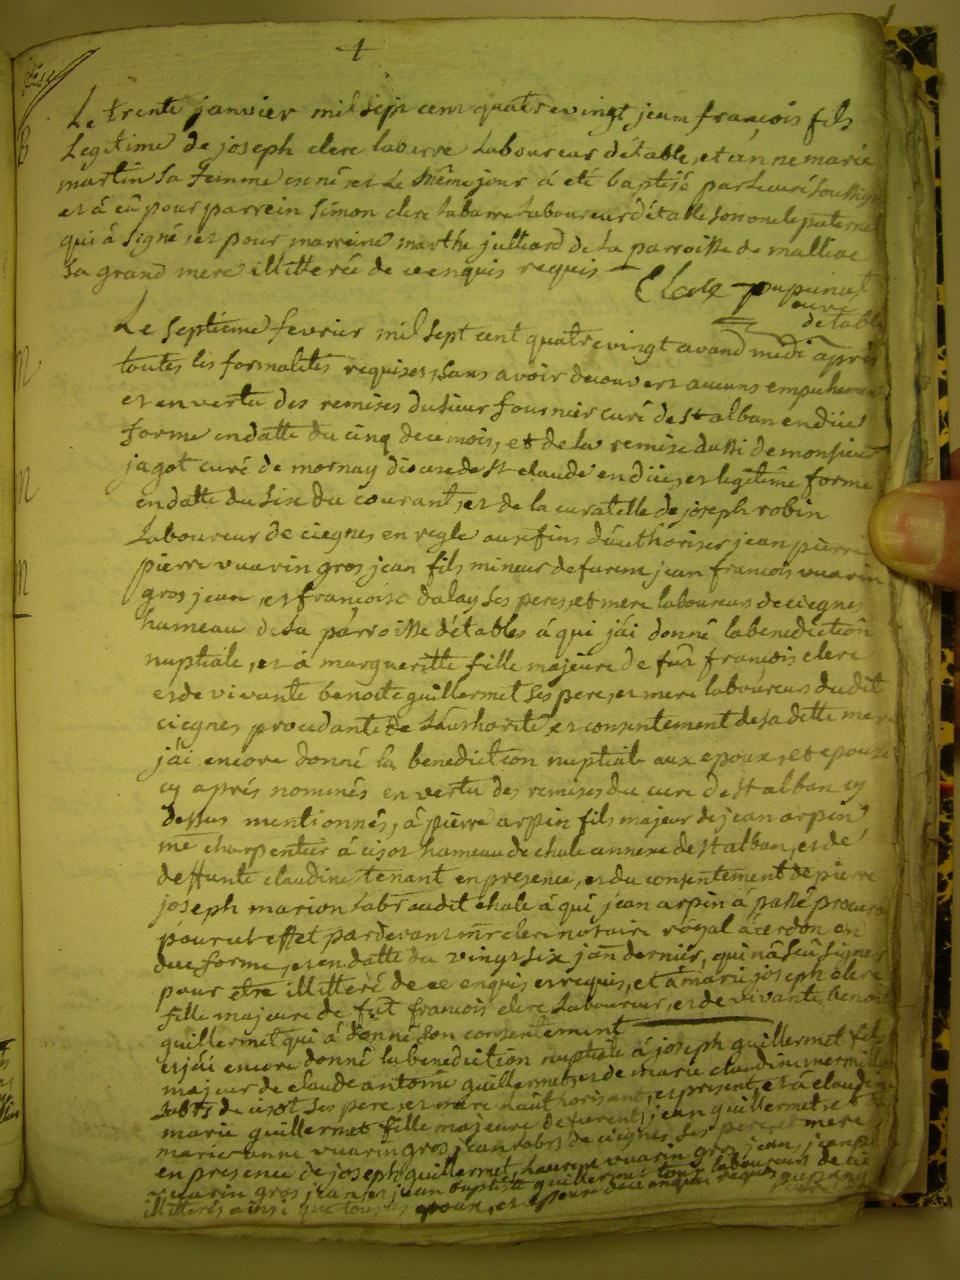 4
Le trente janvier mil sept cent quatrevingt, jean françois fils
Legitime de joseph clerc labarre Laboureur détable, et án ne marie
martin sa femme est né, et Le même jour á eté baptisé par Le curé soussigné
et á eû pour parrein simon clerc labarre Laboureur d'étable son oncle paternel
qui à signé, et pour marreine marthe julliard de la parroisse de malliac
sa grand mere illitterée de ce enquis requis
Clerc pupunat
curé
detable
Le septieme fevrier mil sept cent quatrevingt avand midi aprés
toutes les formalités requises, sans avoir decouvert aucuns empechement
et en vertu des remises du sieur fournier curé de st alban en düe
forme en datte du cinq de ce mois, et de la remise aussi de monsieur
jagot curé de mornay diocese de st claude en düe, et legitime forme
en datte du six du courant, et de la curatelle de joseph robin
Laboureur de ciegnes en regle aux fins d'authoriser jean pierre
pierre vuarin gros jean fils mineur de furent jean francois vuarin
gros jean, et françoise dalay ses peres, et mere laboureurs de ciegnes
hameau de la parroisse d'étables á qui j'ái donné la benediction
nuptiale, et á margueritte fille majeure de fût françois clerc
et de vivante benoite guillermet ses pere, et mere laboureurs dudit
ciegnes procedante de L'authorité et consentement de sa ditte mere
j'ái encore donné la benediction nuptiale aux epoux, et epouse
cy aprés nommés en vertu des remises du curé de st alban cy
dessus mentionnés, á pierre arpin fils majeur de jean arpin
me charpentier á cisot hameau de chale annexe de st alban, et de
deffunte claudine tenant en presence, et du consentement de pierre
joseph marion labr dudit chale á qui jean arpin á passé procura
pour cet effet pardevant mr clerc notaire royal á cerdon en
due forme, et en datte du vingt six jan dernier, qui n'â sçû signer
pour être illitteré de ce enquis et requis, et á marie joseph clerc
fille majeure de fut francois clerc Laboureur, et de vivante benoite
guillermet qui á donné son consentement
et j'ái encore donné la benediction nuptiale á joseph guillermet fils
majeur de claude antoine guillermet, et de marie claudine mermillon
Labrs de cisot ses pere, et mere l'authorisant, et present, et á claudine
marie guillermet fille majeure de furent jean guillermet, et de
marie anne vuarin gros jean labrs de ciegnes ses pere, et mere
en presence de joseph guillermet, laurent vuarin gros jean, jean p
vuarin gros jean, et jean baptiste guillermet tous laboureurs de cie
illiterés ainsi que tous les epoux, et epouse de ce enquis requis